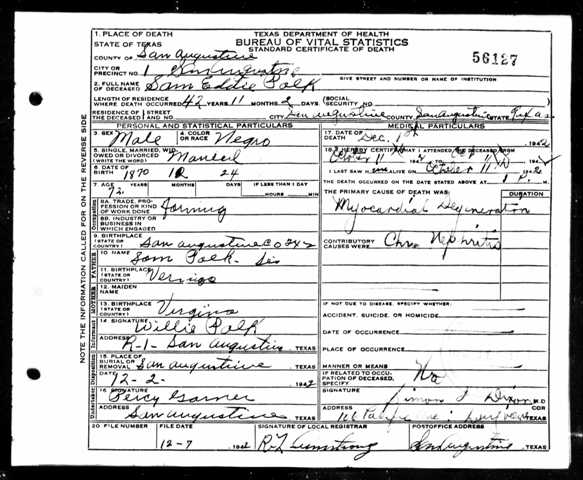 TEXAS DEPARTMENT OF HEALTH
BUREAU OF VITAL STATISTICS
STANDARD CERTIFICATE OF DEATH
56127
1. PLACE OF DEATH
STATE OF TEXAS
COUNTY OF San Augustine
CITY OR
PRECINCT NO. 1 San Augustine
GIVE STREET AND NUMBER OR NAME OF INSTITUTION
2. FULL NAME
OF DECEASED Sam Eddie Polk
LENGTH OF RESIDENCE
WHERE DEATH OCCURRED 42 YEARS 11 MONTHS 2 DAYS (SOCIAL SECURITY NO.
RESIDENCE OF THE DECEASED STREET AND NO. CITY San Augustine COUNTY San Augustine STATE Texas
PERSONAL AND STATISTICAL PARTICULARS
3. SEX Male 4. COLOR OR RACE Negro
5. SINGLE, MARRIED, WIDOWED OR DIVORCED (WRITE THE WORD)
6. DATE OF BIRTH 1870 12 24
7. AGE YEARS MONTHS DAYS IF LESS THAN 1 DAY
72 HOURS MIN
8A. TRADE, PROFESSION OR KIND OF WORK DONE
8B. INDUSTRY OR BUSINESS IN WHICH ENGAGED
9. BIRTHPLACE (STATE OR COUNTRY) San Augustine Co
10. NAME Sam Polk
11. BIRTHPLACE (STATE OR COUNTRY)
12. MAIDEN NAME
13. BIRTHPLACE (STATE OR COUNTRY)
14. SIGNATURE Willie Polk
ADDRESS R-1- San Augustine TEXAS
15. PLACE OF BURIAL OR REMOVAL San Augustine TEXAS
DATE 12-2- 1942
16. SIGNATURE Percy Garner
ADDRESS San Augustine TEXAS
MEDICAL PARTICULARS
17. DATE OF DEATH Dec. 1942
18. I HEREBY CERTIFY THAT I ATTENDED THE DECEASED FROM
TO
I LAST SAW ALIVE ON
THE DEATH OCCURRED ON THE DATE STATED ABOVE AT
THE PRIMARY CAUSE OF DEATH WAS: DURATION
Myocardial Degeneration
CONTRIBUTORY CAUSES WERE Chro Nephritis
IF NOT DUE TO DISEASE, SPECIFY:
ACCIDENT, SUICIDE, OR HOMICIDE
DATE OF OCCURRENCE
PLACE OF OCCURRENCE
MANNER OR MEANS
IF RELATED TO OCCUPATION OF DECEASED, SPECIFY No
M.D.
TEXAS
20. FILE NUMBER FILE DATE SIGNATURE OF LOCAL REGISTRAR POSTOFFICE ADDRESS
12-7 1942 San Augustine TEXAS
NOTE THE INFORMATION CALLED FOR ON THE REVERSE SIDE
FATHER
MOTHER